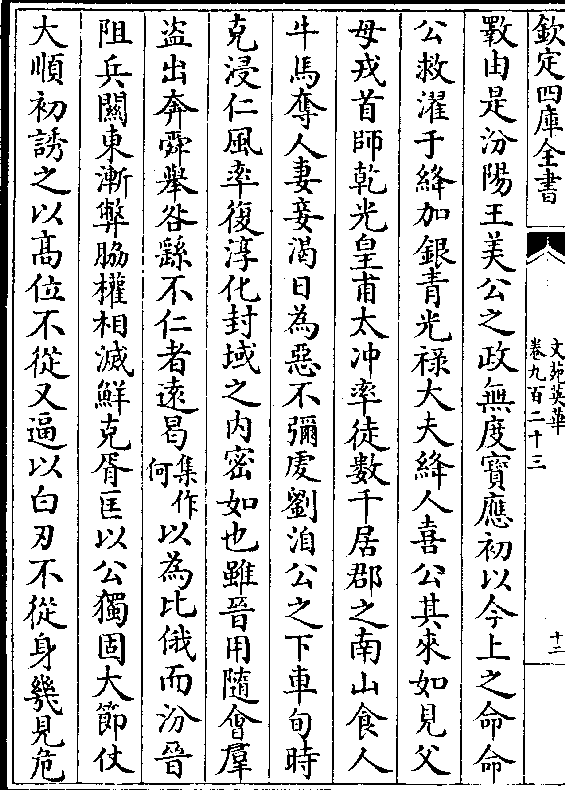 欽定四庫全書
文苑英華
卷九百二十三
十二
斁由是汾陽王美公之政無度寳應初以今上之命命
公救濯于絳加銀青光祿大夫絳人喜公其來如見父
母戎首師乾光皇甫太冲率徒数千居郡之南山食人
牛馬奪人妻妾渴日為惡不彌䖍劉洎公之下車旬時
克浸仁風率復淳化封域之内密如也雖晉用隨㑹羣
盜出奔舜舉咎繇不仁者逺曷
集作何
以為比俄而汾晉
阻兵關東漸弊脇權相滅鮮克胥匡以公獨固大節仗
大順初誘之以髙位不從又逼以白刃不從身幾見危